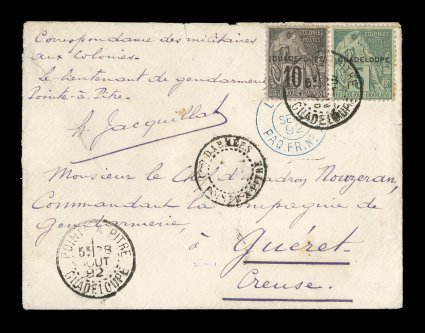 Correspondance des militaires
aux Colonies.
Le lieutenant de gendarmerie
Pointe-à-Pitre.
h. Jacquillat
COLONIES
POSTES
GUADELOUPE
10
COLONIES
GUADELOUPE
GUADELOUPE
92
PAQ. FR. Nº
Monsieur le Chef d'Escadron Nouzeran,
Commandant la Compagnie de
Gendarmerie,
à Guéret
Creuse.
POINTE A PITRE
5E 28
AOUT
92
GUADELOUPE